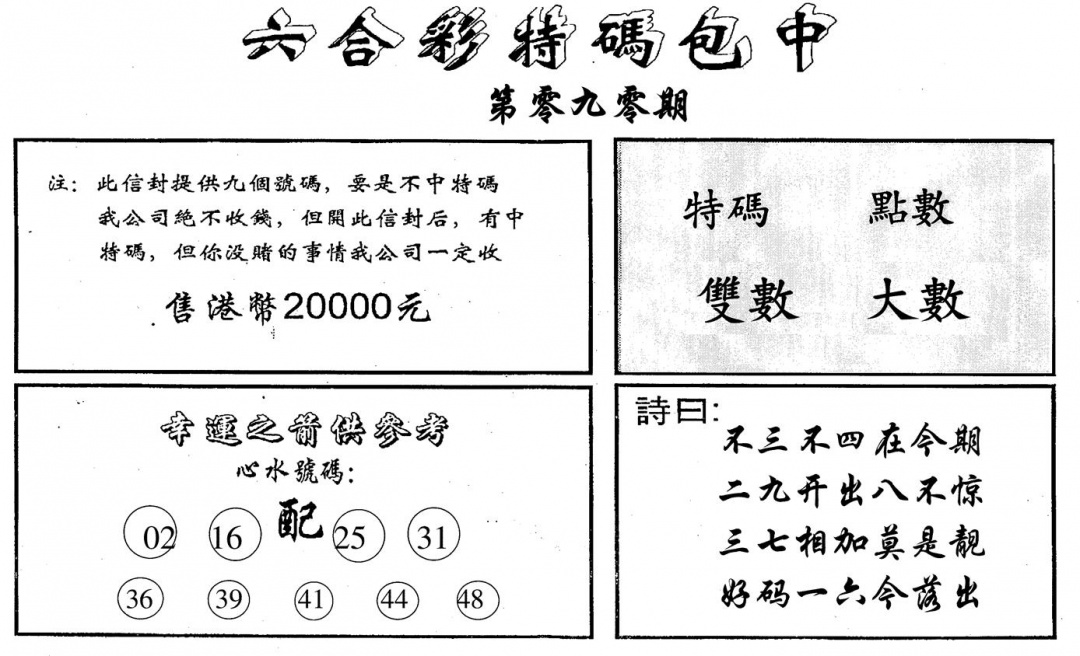 六合彩特碼包中
第零九零期
注：此信封提供九個號碼，要是不中特碼
我公司絕不收錢，但開此信封后，有中
特碼，但你没賭的事情我公司一定收
售港幣20000元
特碼 點數
雙數 大數
幸運之箭供參考
心水號碼：
02 16 配 25 31
36 39 41 44 48
詩曰：
不三不四在今期
二九开出八不惊
三七相加莫是靚
好码一六今落出